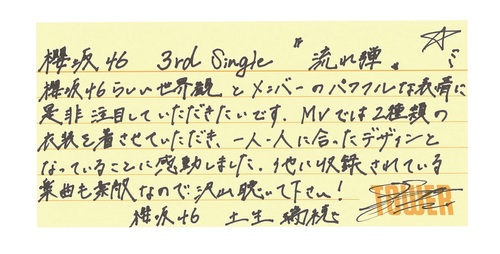 櫻坂46 3rd Single 〝流れ弾〟
櫻坂46らしい世界観とメンバーのパワフルな表情に
是非注目していただきたいです。MVでは2種類の
衣装を着させていただき、一人一人に合ったデザインと
なっていることに感動しました。他に収録されている
楽曲も素敵なので沢山聴いて下さい！
櫻坂46 土生瑞穂
TOWER